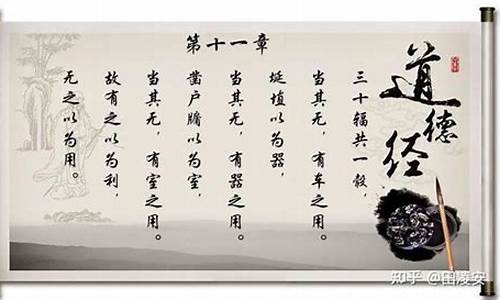 道德经
第十一章
三十辐共一毂，
当其无，有车之用。
埏埴以为器，
当其无，有器之用。
凿户牖以为室，
当其无，有室之用。
故有之以为利，
无之以为用。
知乎 @田陵安